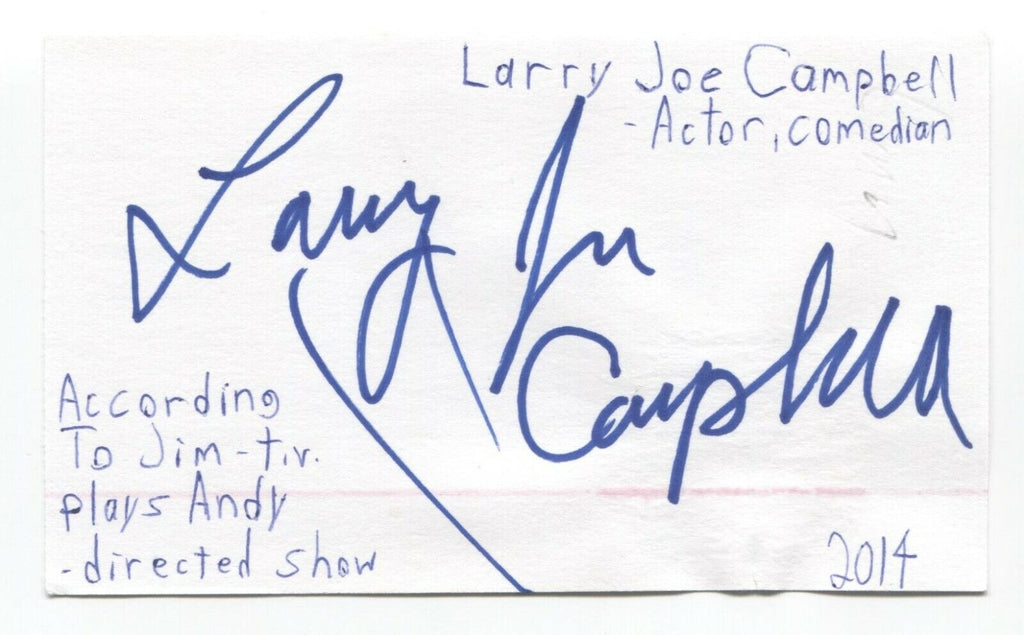 Larry Joe Campbell
- Actor, comedian
Larry Joe
Campbell
According
To Jim - t.v.
plays Andy
- directed show
2014